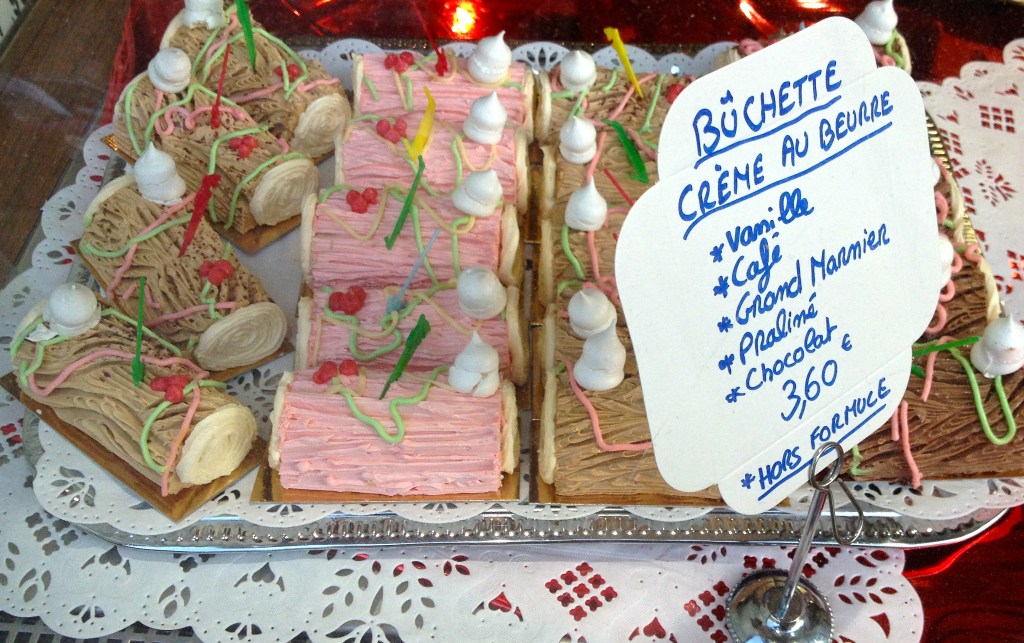 BÛCHETTE
CRÈME AU BEURRE
*Vanille
*Café
*Grand Marnier
*Praliné
*Chocolat
3,60 €
*HORS FORMULE